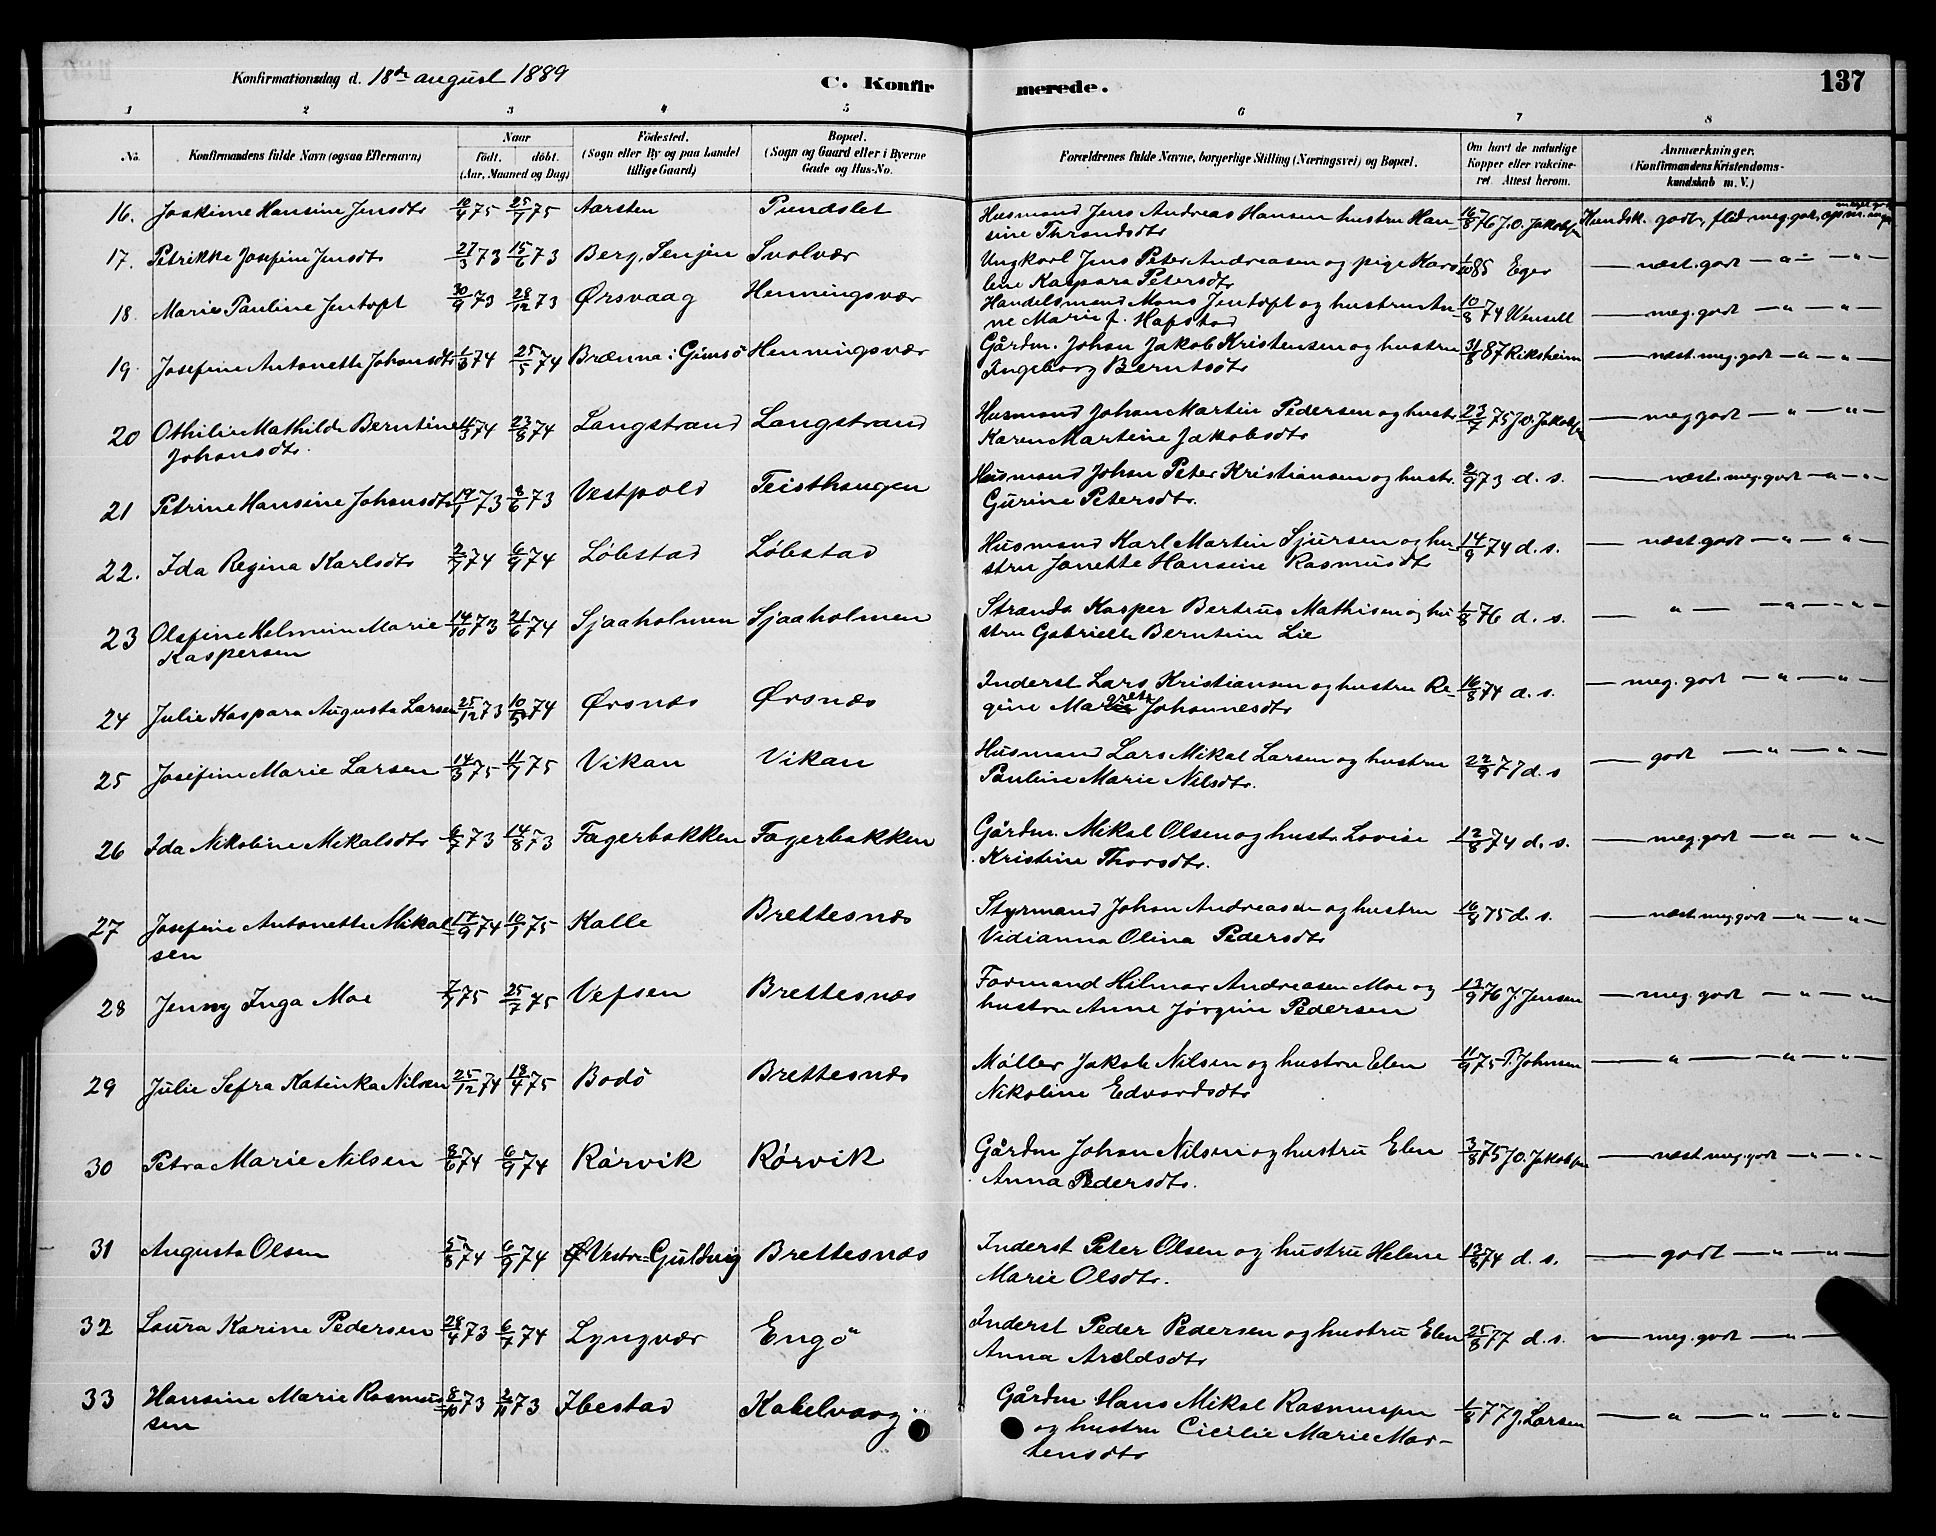 Konfirmationsdag d. 18de august 1889
C. Konfirmerede.
137
1 2 3 4 5 6 7 8
No. Konfirmandens fulde Navn (ogsaa Efternavn) Naar födt. döbt. (Aar, Maaned og Dag) Födested. (Sogn eller By og paa Landet tillige Gaard) Bopæl. (Sogn og Gaard eller i Byerne Gade og Hus-No. Forældrenes fulde Navne, borgerlige Stilling (Næringsvei) og Bopæl. Om havt de naturlige Kopper eller vakcineret. Attest herom. Anmærkninger. (Konfirmandens Kristendomskundskab m. V.)
16. Joakime Hansine Jensdtr 10/4 75 25/7 75 Aarsten Pundslet Husmand Jens Andreas Hansen hustru Han- 16/8 76 J.O. Jakobsen Kundsk. godt, flid meg. godt,
sine Throndsdtr
17. Petrikke Josefine Jensdtr 27/3 73 15/6 73 Berg, Senjen Svolvær Ungkarl Jens Peter Andreasen og pige Karo- 1/10 85 Eger — næst. godt — " — "
line Kaspara Petersdtr
18. Marie Pauline Jentoft 30/9 73 28/12 73 Ørsvaag Henningsvær Handelsmand Mons Jentoft og hustru An- 10/8 74 Wensell — meg. godt — " — "
ne Marie f. Hafstad
19. Josefine Antonette Johansdtr 1/3 74 25/5 74 Brænna i Gimsö Henningsvær Gårdm. Johan Jakob Kristensen og hustru 31/8 87 Riksheim — næst. meg. godt — " — "
Ingeborg Berntsdtr
20 Othilie Mathilde Berntine 11/3 74 23/8 74 Langstrand Langstrand Husmand Johan Martin Pedersen og hustr. 23/7 75 J.O. Jakobsen — meg godt — " — "
Johansdtr. Karen Martine Jakobsdtr
21 Petrine Hansine Johansdtr 19/1 73 8/6 73 Vestpold Teisthaugen Husmand Johan Peter Kristiansen og hustr. 2/9 73 d. s. — næst. meg. godt — " — "
Gurine Petersdtr.
22. Ida Regina Karlsdtr 2/7 74 6/9 74 Löbstad Löbstad Husmand Karl Martin Sjursen og hu- 14/9 74 d. s. — næst. godt — " — "
stru Janette Hansine Rasmusdtr
23 Olefine Helmine Marie 14/10 73 21/6 74 Sjaaholmen Sjaaholmen Strands. Kasper Bertrus Mathisen og hu- 1/8 76 d. s. — " — " — "
Kaspersen stru Gabrielle Berntine Lie
24 Julie Kaspara Augusta Larsen 25/12 73 10/5 74 Ørsnæs Ørsnæs Inderst Lars Kristiansen og hustru Re- 16/8 74 d. s. — meg. godt — " — "
gine Margrete Johannesdtr
25 Josefine Marie Larsen 14/3 75 11/7 75 Vikan Vikan Husmand Lars Mikal Larsen og hustru 22/9 77 d. s — godt — " — "
Pauline Marie Nilsdtr.
26 Ida Nikoline Mikalsdtr 6/7 73 14/8 73 Fagerbakken Fagerbakken Gårdm. Mikal Olsen og hustr. Lovise 12/8 74 d. s. — meg. godt — " — "
Kristine Thorsdtr.
27 Josefine Antonette Mikal- 17/9 74 10/7 75 Kalle Brettesnæs Styrmand Johan Andreasen og hustru 16/8 75 d. s. — næst. meg. godt — " — "
sen Vidianna Olina Pedersdtr
28 Jenny Inga Moe 7/4 75 25/7 75 Vefsen Brettesnæs Formand Hilmar Andreasen Moe og 13/9 76 J. Jensen — meg. godt — " — "
hustru Anne Jörgine Pedersen
29 Julie Sefra Katinka Nilsen 25/12 74 18/4 75 Bodö Brettesnæs Möller Jakob Nilsen og hustru Elen 11/9 75 P. Johnsen — " — " — "
Nikoline Edvardsdtr
30 Petra Marie Nilsen 8/6 74 6/9 74 Rörvik Rörvik Gårdm Johan Nilsen og hustru Elen 3/8 75 J.O. Jakobsen — næst. meg. godt — " — "
Anna Pedersdtr.
31 Augusta Olsen 5/8 74 6/9 74 Vestre-Guldvig Brettesnæs Inderst Peter Olsen og hustru Helene 13/8 74 d. s. — godt — " — "
Marie Olsdtr.
32 Laura Karine Pedersen 28/4 73 6/7 74 Lyngvær Engö Inderst Peder Pedersen og hustru Elen 25/8 77 d. s. — meg. godt — " — "
Anna Areldsdtr
33 Hansine Marie Rasmus- 8/10 73 2/11 73 Ibestad Kabelvaag Gårdm. Hans Mikal Rasmussen 1/8 77 J. Larsen — " — " — "
sen og hustru Cicilie Marie Mor-
tensdtr